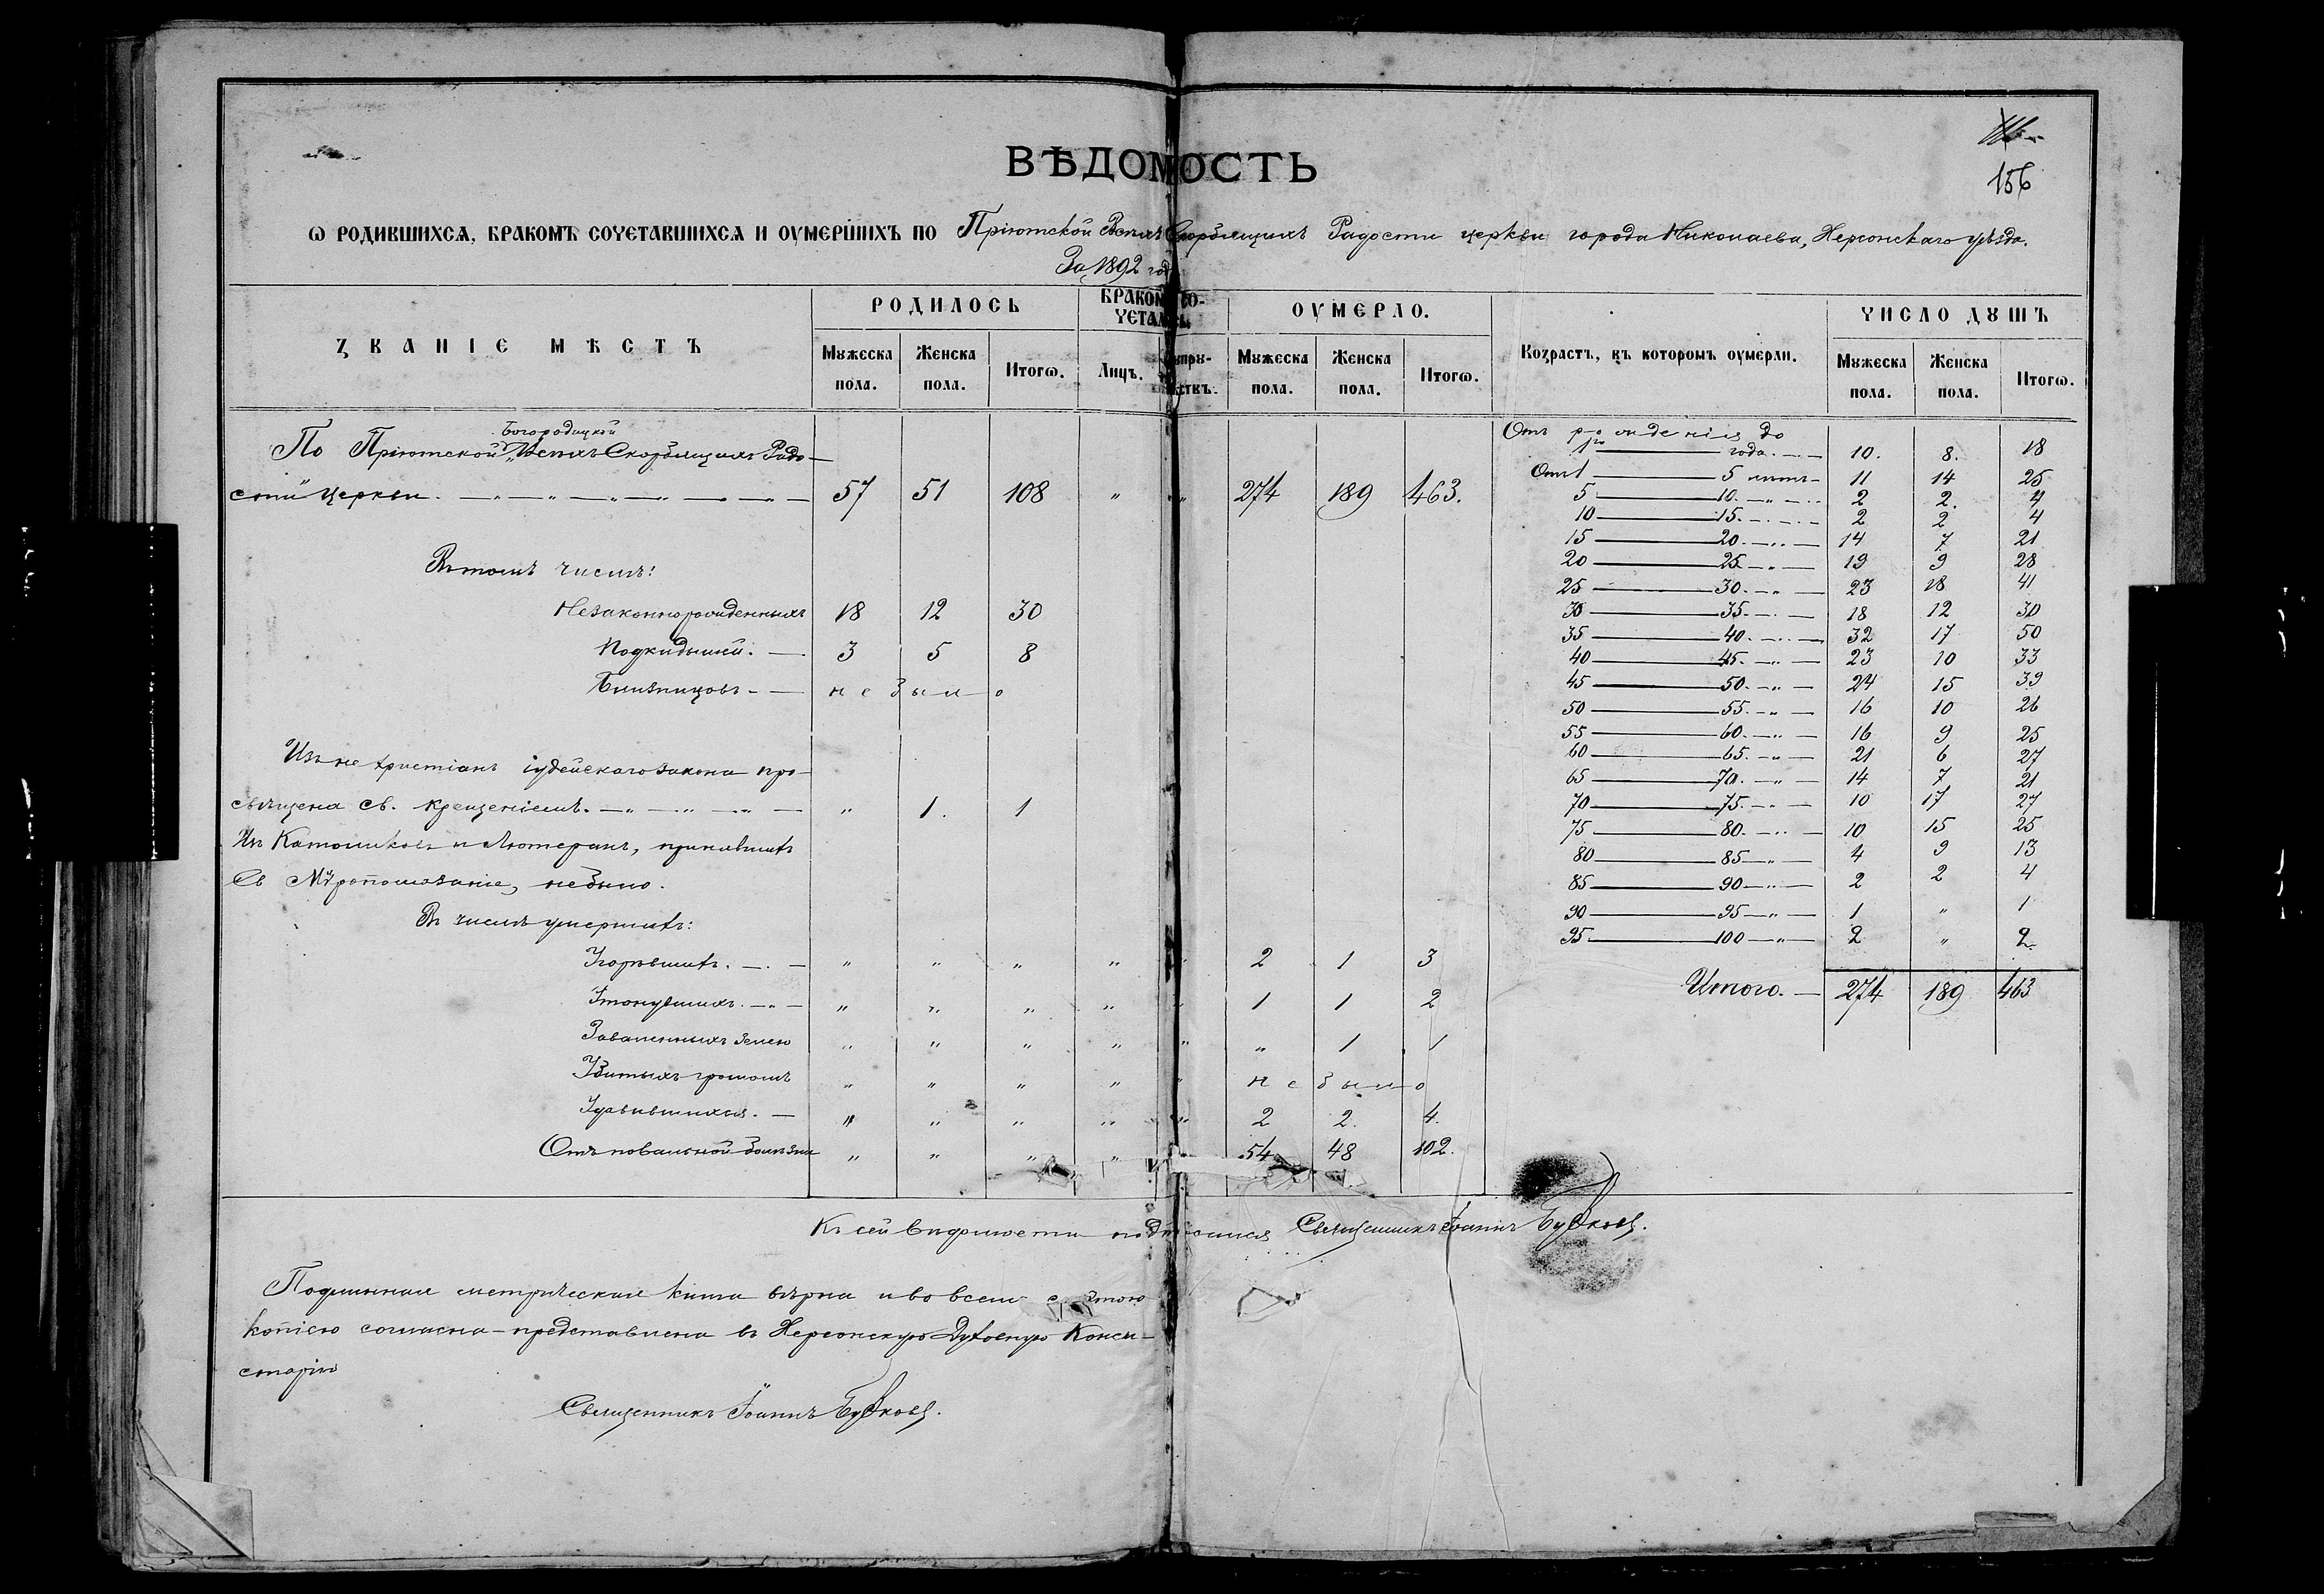 156
ВѢДОМОСТЬ
Ѡ РОДИВШИХСѦ, БРАКОМЪ СОЧЕТАВШИХСѦ И ОУМЕРШИХЪ ПО Пріютской Всѣхъ Скорбящихъ Радости церкви города Николаева, Херсонскаго уѣзда.
За 1892 годъ
ЗВАНІЕ МѢСТЪ
РОДИЛОСЬ
БРАКОМЪ СО-
ЧЕТАЛОСЬ
ОУМЕРЛО.
Возрастъ, въ которомъ оумерли.
ЧИСЛО ДꙊШЪ
Мꙋжеска пола. Женска пола. Итогѡ. Лицъ. Мꙋжеска пола. Женска пола. Итогѡ. Мꙋжеска пола. Женска пола. Итогѡ.
Богородицкой
По Пріютской „Всѣхъ Скорбящихъ Радо-
сти" Церкви. 57 51 108 " " 274 189 463.
Въ томъ числѣ:
Незаконнорожденныхъ 18 12 30
Подкидышей. 3 5 8
Близнецовъ не было
Изъ не христіанъ іудейскаго закона про-
свѣщена св. крещеніемъ. " 1. 1
Изъ Католиковъ и Лютеранъ, принявшихъ
Св Мѵропомазаніе, не было.
Въ числѣ умершихъ:
Угорѣвшихъ. " " " " " 2 1 3
Утонувшихъ. " " " " " 1 1 2
Заваленныхъ землею " " " " " " 1 1
Убитыхъ громомъ " " " " " не было
Удавившихся. " " " " " 2 2. 4.
Отъ повальной болѣзни " " " " 54 48 102.
Отъ рожденія до
1го года. 10. 8. 18
Отъ 1 5 лѣтъ 11 14 25
5 10. " 2 2. 4
10 15. 2 2 4
15 20. " 14 7 21
20 25 " 19 9 28
25 30. " 23 18 41
30 35. 18 12 30
35 40. " 32 17 50
40 45. " 23 10 33
45 50. " 24 15 39
50 55. " 16 10 26
55 60. " 16 9 25
60 65. " 21 6 27
65 70. " 14 7 21
70 75. " 10 17 27
75 80. " 10 15 25
80 85 " 4 9 13
85 90 " 2 2 4
90 95 " 1 " 1
95 100 " 2 " 2
Итого. 274 189 463
Къ сей вѣдомости подписался Священникъ Іоаннъ Будковъ.
Подлинная метрическая книга вѣрна и во всемъ съ этою
копіею согласна - представлена въ Херсонскую Духовную Конси-
сторію
Священникъ Іоаннъ Будковъ.